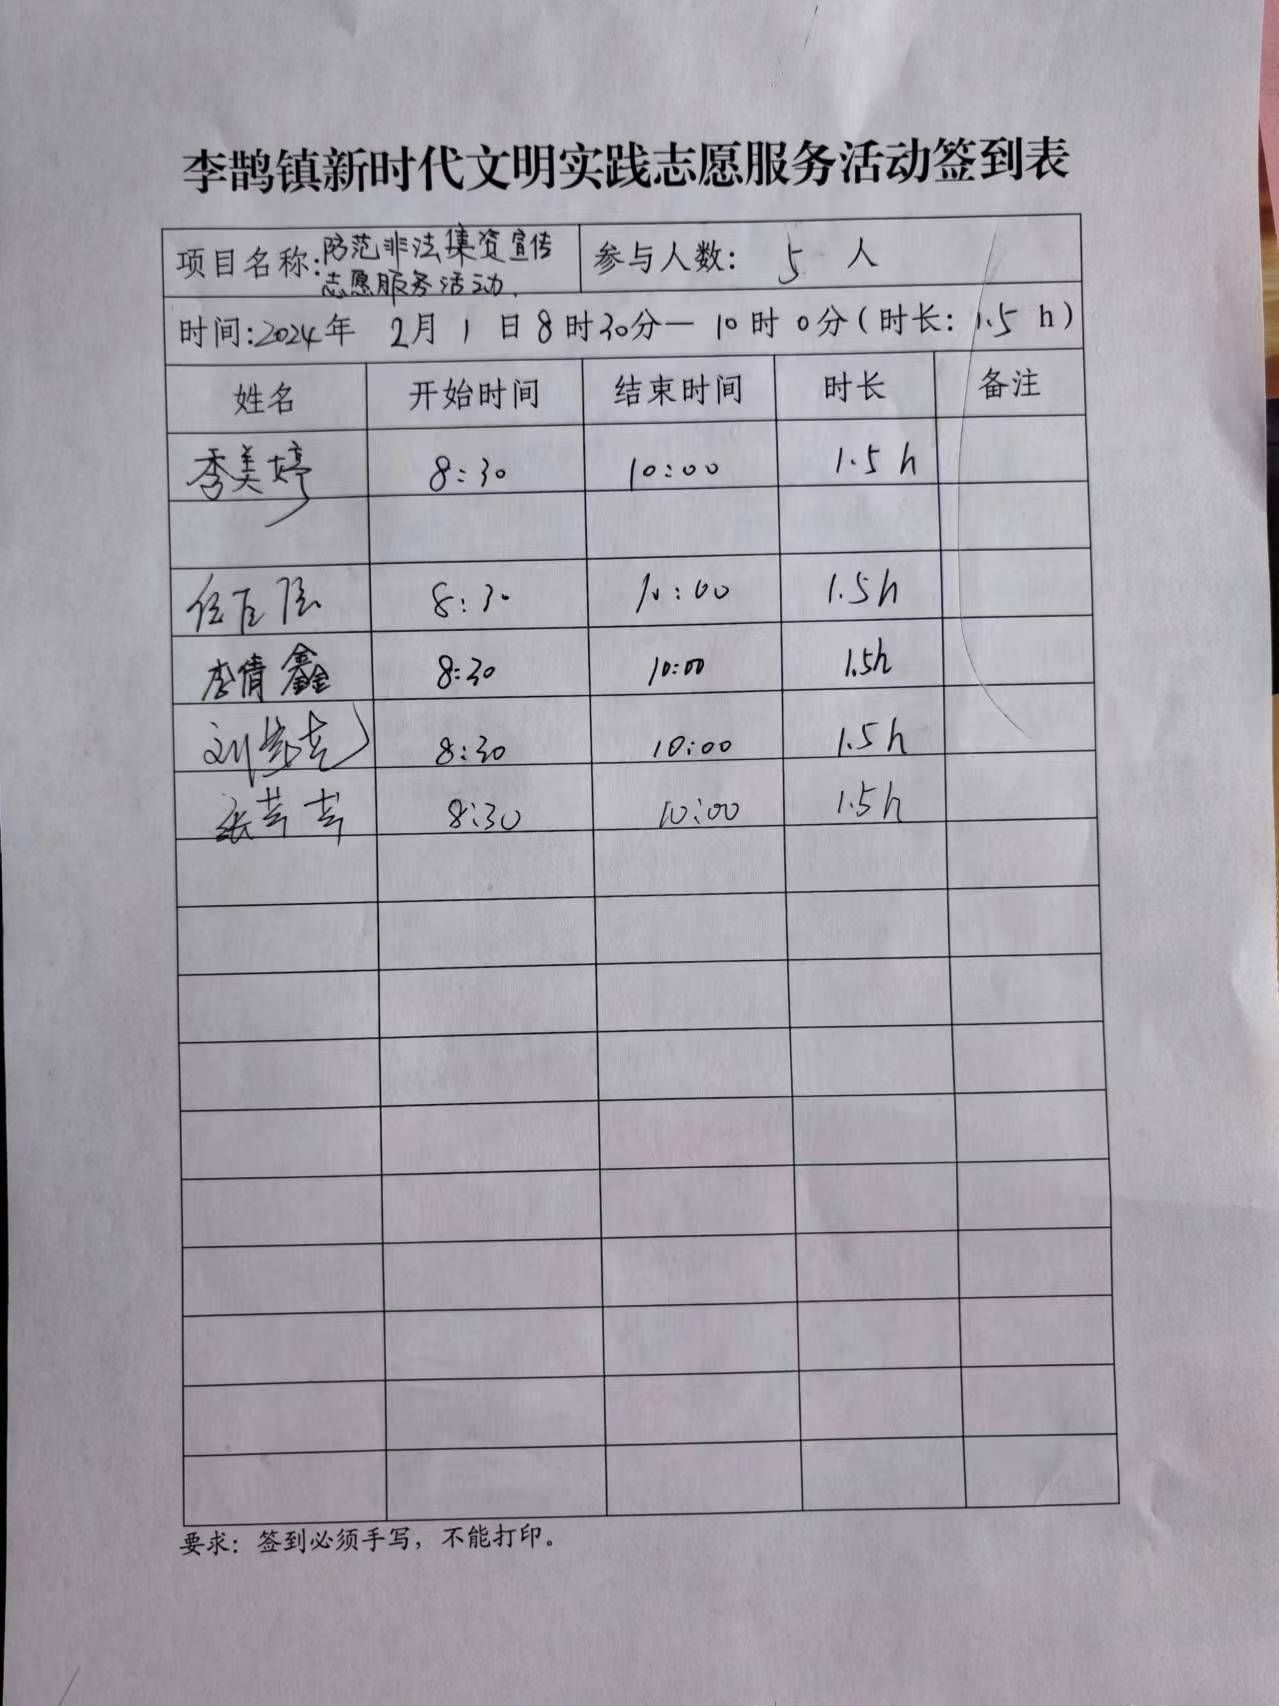 李鹊镇新时代文明实践志愿服务活动签到表
项目名称:防范非法集资宣传 参与人数: 5 人
志愿服务活动.
时间:2024年 2月 1 日 8 时30分— 10 时 0 分(时长: 1.5 h)
姓名 开始时间 结束时间 时长 备注
秀美婷 8:30 10:00 1.5 h
8:30 10:00 1.5h
李倩鑫 8:30 10:00 1.5h
刘 8:30 10:00 1.5h
张芸芸 8:30 10:00 1.5h
要求: 签到必须手写, 不能打印。